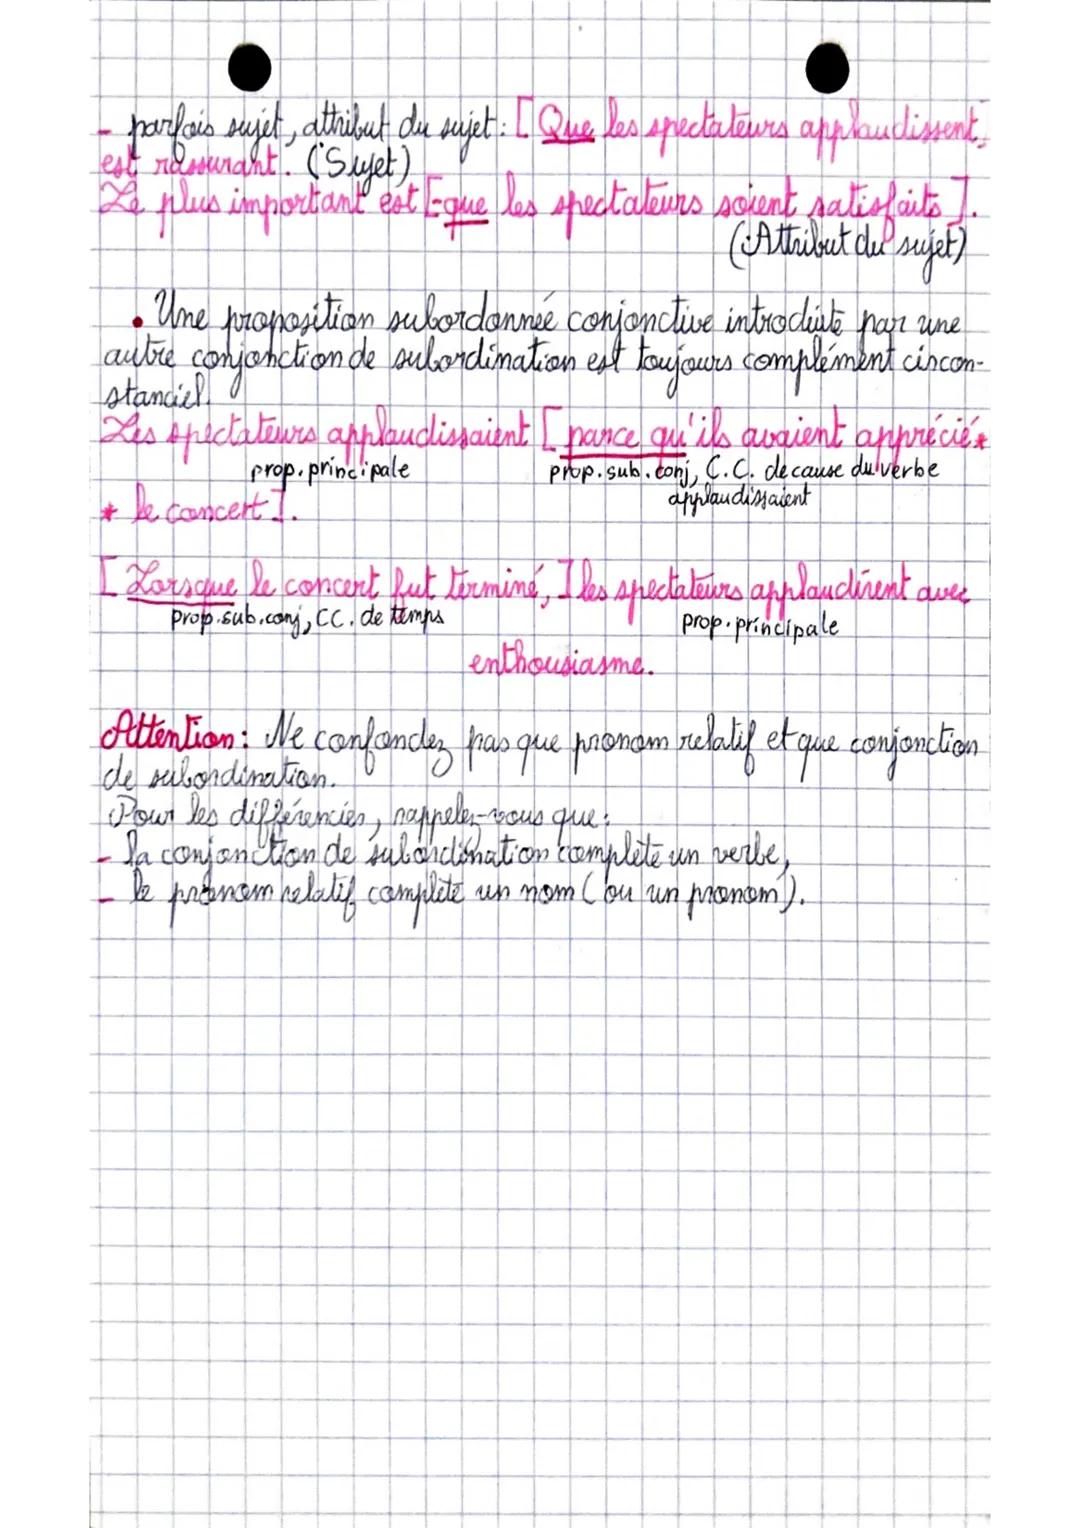 - parfois sujet, attribut du sujet : [Que les spectateurs applaudissent]
est rassurant. (Sujet)
Le plus important est [que les spectateurs soient satisfaits].
(Attribut du sujet)
• Une proposition subordonnée conjonctive introduite par une
autre conjonction de subordination est toujours complément circon-
stanciel.
Les spectateurs applaudissaient [parce qu'ils avaient apprécié*
prop. principale prop. sub. conj, C.C. de cause du verbe
applaudissaient
* le concert].
[Lorsque le concert fut terminé,] les spectateurs applaudirent avec
prop. sub. conj, CC. de temps prop. principale
enthousiasme.
Attention : Ne confondez pas que pronom relatif et que conjonction
de subordination.
Pour les différencier, rappelez-vous que :
- la conjonction de subordination complète un verbe,
- le pronom relatif complète un nom (ou un pronom).